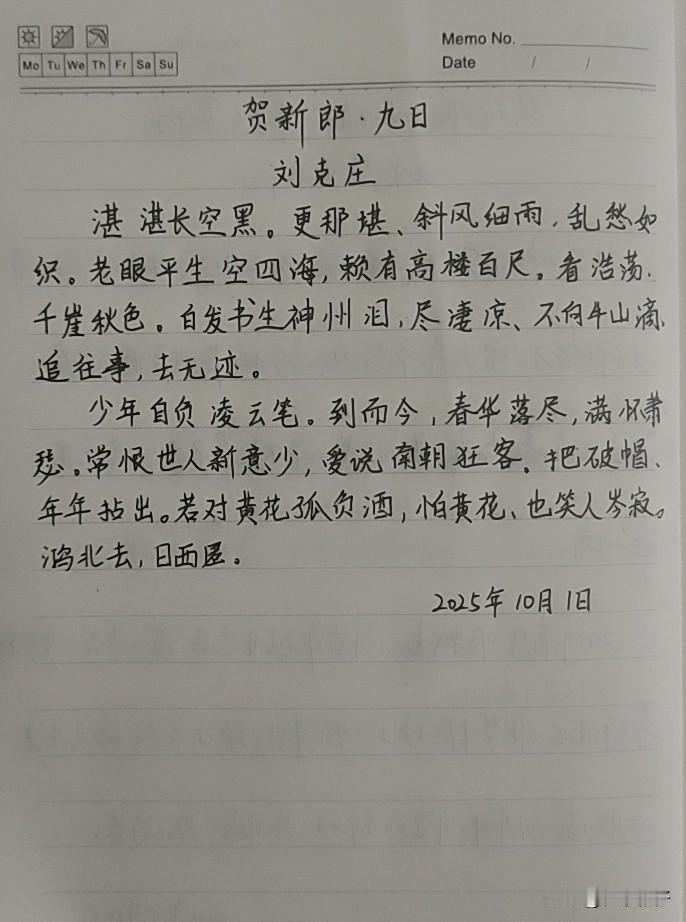 Memo No.
Mo Tu We Th Fr Sa Su
Date / /
贺新郎·九日
刘克庄
湛湛长空黑。更那堪、斜风细雨,乱愁如
织。老眼平生空四海,赖有高楼百尺。看浩荡、
千崖秋色。白发书生神州泪,尽凄凉、不向牛山滴。
追往事,去无迹。
少年自负凌云笔。到而今,春华落尽,满怀萧
瑟。常恨世人新意少,爱说南朝狂客。把破帽、
年年拈出。若对黄花孤负酒,怕黄花、也笑人岑寂。
鸿北去,日西匿。
2025年10月1日